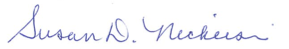 Susan D. Nickerson